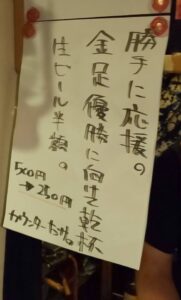 勝手に応援の
金足優勝に向け乾杯
生ビール半額の
500円
→250円
カウンターだけ。